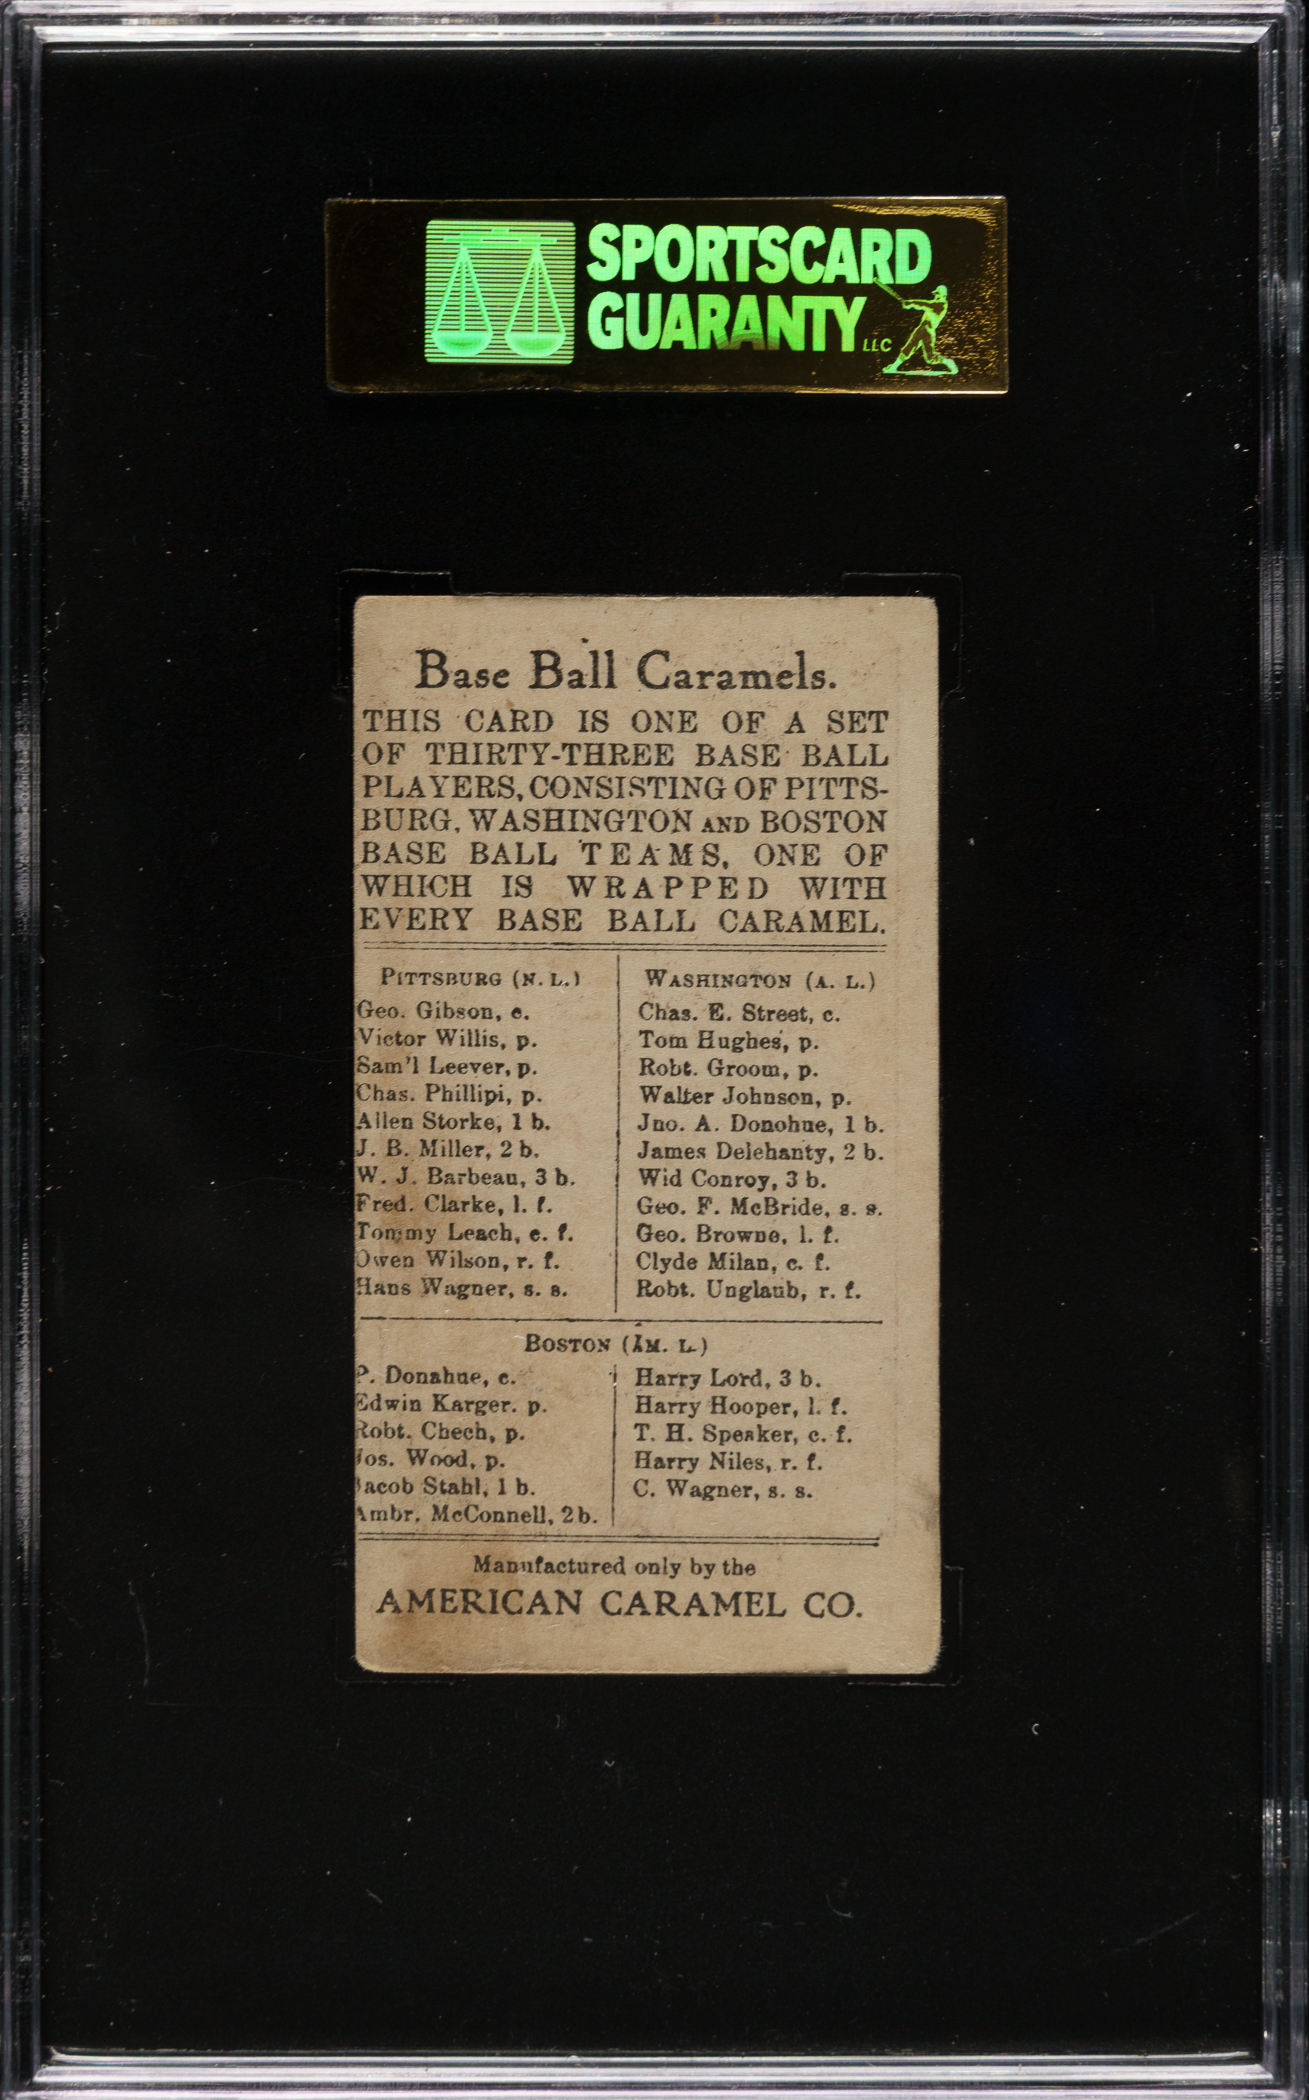 SPORTSCARD
GUARANTY LLC
Base Ball Caramels.
THIS CARD IS ONE OF A SET
OF THIRTY-THREE BASE BALL
PLAYERS, CONSISTING OF PITTS-
BURG, WASHINGTON AND BOSTON
BASE BALL TEAMS, ONE OF
WHICH IS WRAPPED WITH
EVERY BASE BALL CARAMEL.
PITTSBURG (N. L.)
Geo. Gibson, c.
Victor Willis, p.
Sam'l Leever, p.
Chas. Phillipi, p.
Allen Storke, 1 b.
J. B. Miller, 2 b.
W. J. Barbeau, 3 b.
Fred. Clarke, l. f.
Tommy Leach, c. f.
Owen Wilson, r. f.
Hans Wagner, s. s.
WASHINGTON (A. L.)
Chas. E. Street, c.
Tom Hughes, p.
Robt. Groom, p.
Walter Johnson, p.
Jno. A. Donohue, 1 b.
James Delehanty, 2 b.
Wid Conroy, 3 b.
Geo. F. McBride, s. s.
Geo. Browne, l. f.
Clyde Milan, c. f.
Robt. Unglaub, r. f.
BOSTON (AM. L.)
P. Donahue, c.
Edwin Karger. p.
Robt. Chech, p.
Jos. Wood, p.
Jacob Stahl, 1 b.
Ambr. McConnell, 2 b.
Harry Lord, 3 b.
Harry Hooper, l. f.
T. H. Speaker, c. f.
Harry Niles, r. f.
C. Wagner, s. s.
Manufactured only by the
AMERICAN CARAMEL CO.